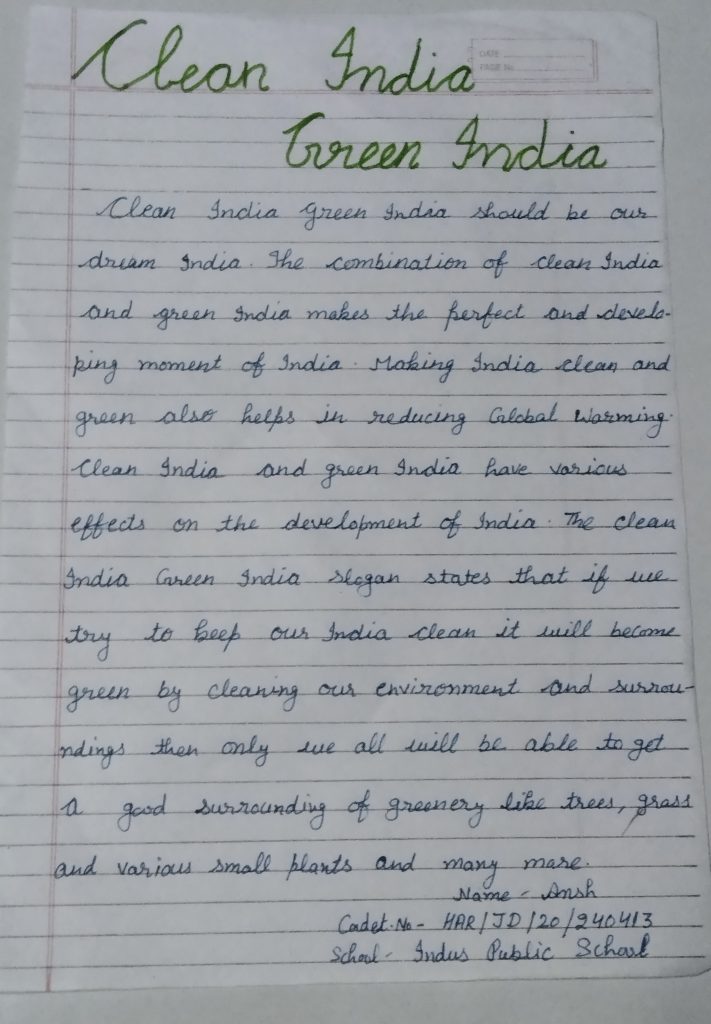 Clean India
DATE
PAGE No.
Green India
Clean India Green India should be our
dream India. The combination of clean India
and green India makes the perfect and develo-
ping moment of India. Making India clean and
green also helps in reducing Global Warming.
Clean India and green India have various
effects on the development of India. The clean
India Green India slogan states that if we
try to keep our India clean it will become
green by cleaning our environment and surrou-
ndings then only we all will be able to get
a good surrounding of greenery like trees, grass
and various small plants and many more.
Name - Ansh
Cadet.No - HAR/JD/20/240413
School - Indus Public School